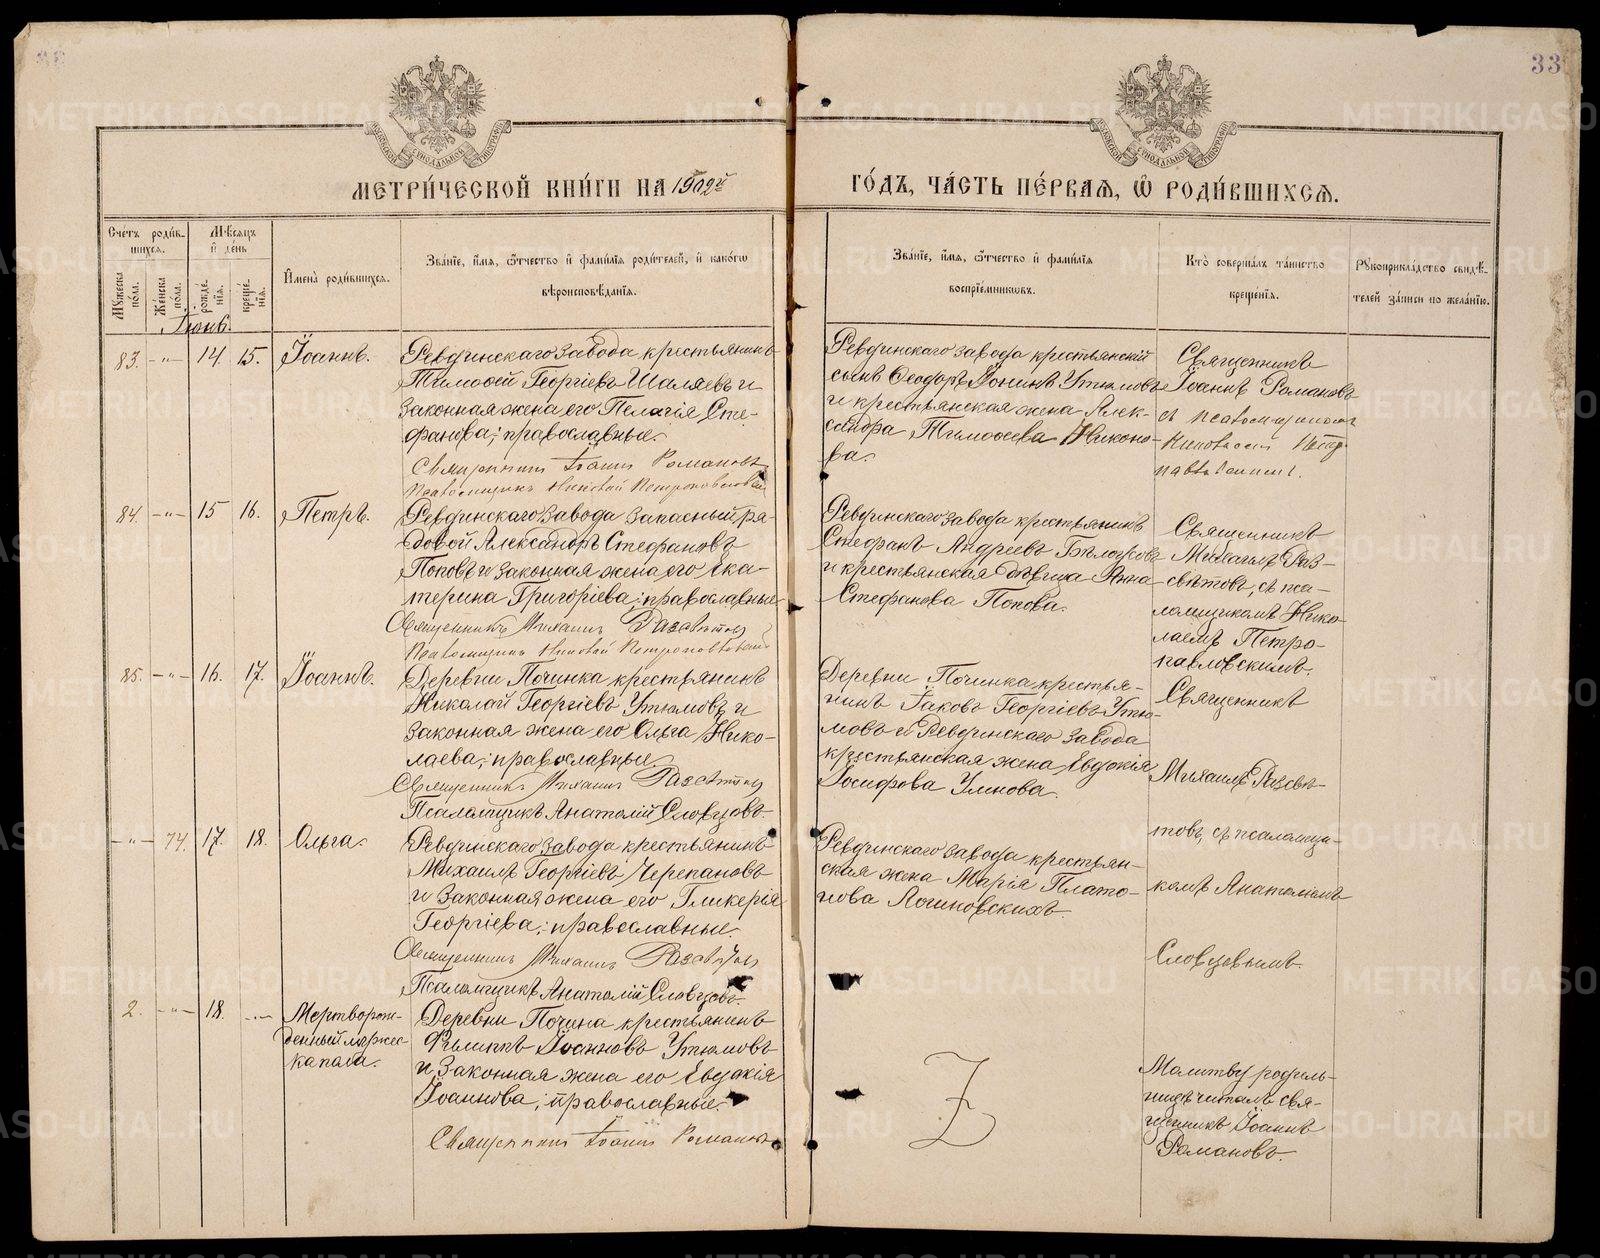 33
МЕТРИ́ЧЕСКОЙ КНИ́ГИ НА 1902й
ГО́ДЪ, ЧА́СТЬ ПЕ́РВАѦ, Ѡ҆ РОДИ́ВШИХСѦ.
Сче́тъ роди́в-
шихся.
Му́жеска по́ла.
Же́нска по́ла.
Мѣ́сяцъ и де́нь
рожде́-
нїя.
креще́-
нїя.
И҆мена̀ роди́вшихся.
Зва́нїе, и҆́мя, ѻ҆́тчество и҆ фами́лїя роди́телей, и҆ како́гѡ
вѣроисповѣ́данїя.
Зва́нїе, и҆́мя, ѻ҆́тчество и҆ фами́лїя
воспрїе́мниковъ.
Кто̀ соверша́лъ та́инство
креще́нїя.
Рукоприкла́дство свидѣ́-
телей за́писи по жела́нїю.
Іюнь.
83. -"- 14. 15. Іоаннъ.
Ревдинскаго завода крестьянинъ
Тимофей Георгіевъ Шаляевъ и
законная жена его Пелагія Сте-
фанова; православные.
Священникъ Іоаннъ Романовъ
Псаломщикъ Николай Петропавловскій
Ревдинскаго завода крестьянскій
сынъ Ѳеодоръ Іонинъ Утюмовъ
и крестьянская жена Алек-
сандра Тимофеева Никоно-
ва.
Священникъ
Іоаннъ Романовъ
съ псаломщикомъ
84. -"- 15 16. Петръ.
Ревдинскаго завода запасный ря-
довой Александръ Стефановъ
Поповъ и законная жена его Ека-
терина Григоріева; православные
Священникъ Михаилъ Разсвѣтовъ
Псаломщикъ Николай Петропавловскій
Ревдинскаго завода крестьянинъ
Стефанъ Андреевъ Бѣлоусовъ
и крестьянская дѣвица Анна
Стефанова Попова.
Священникъ
Михаилъ Раз-
свѣтовъ, съ пса-
ломщикомъ Нико-
лаемъ Петро-
павловскимъ.
85. -"- 16. 17. Іоаннъ.
Деревни Починка крестьянинъ
Николай Георгіевъ Утюмовъ и
законная жена его Ольга Нико-
лаева; православные.
Священникъ Михаилъ Разсвѣтовъ
Псаломщикъ Анатолій Словцовъ.
Деревни Починка крестья-
нинъ Іаковъ Георгіевъ Утю-
мовъ и Ревдинскаго завода
крестьянская жена Евдокія
Іосифова Умнова.
Священникъ
Михаилъ Разсвѣ-
товъ, съ псаломщи-
комъ Анатоліемъ
Словцовымъ.
-"- 74. 17. 18. Ольга.
Ревдинскаго завода крестьянинъ
Михаилъ Георгіевъ Черепановъ
и законная жена его Гликерія
Георгіева; православные.
Священникъ Михаилъ Разсвѣтовъ
Псаломщикъ Анатолій Словцовъ.
Ревдинскаго завода крестьян-
ская жена Марія Плато-
нова Логиновскихъ.
2. -"- 18. -"- Мертворож-
денный мужес-
ка пола.
Деревни Почина крестьянинъ
Филиппъ Іоанновъ Утюмовъ
и законная жена его Евдокія
Іоаннова; православные.
Священникъ Іоаннъ Романовъ
Молитву родиль-
ницѣ читалъ свя-
щенникъ Іоаннъ
Романовъ.